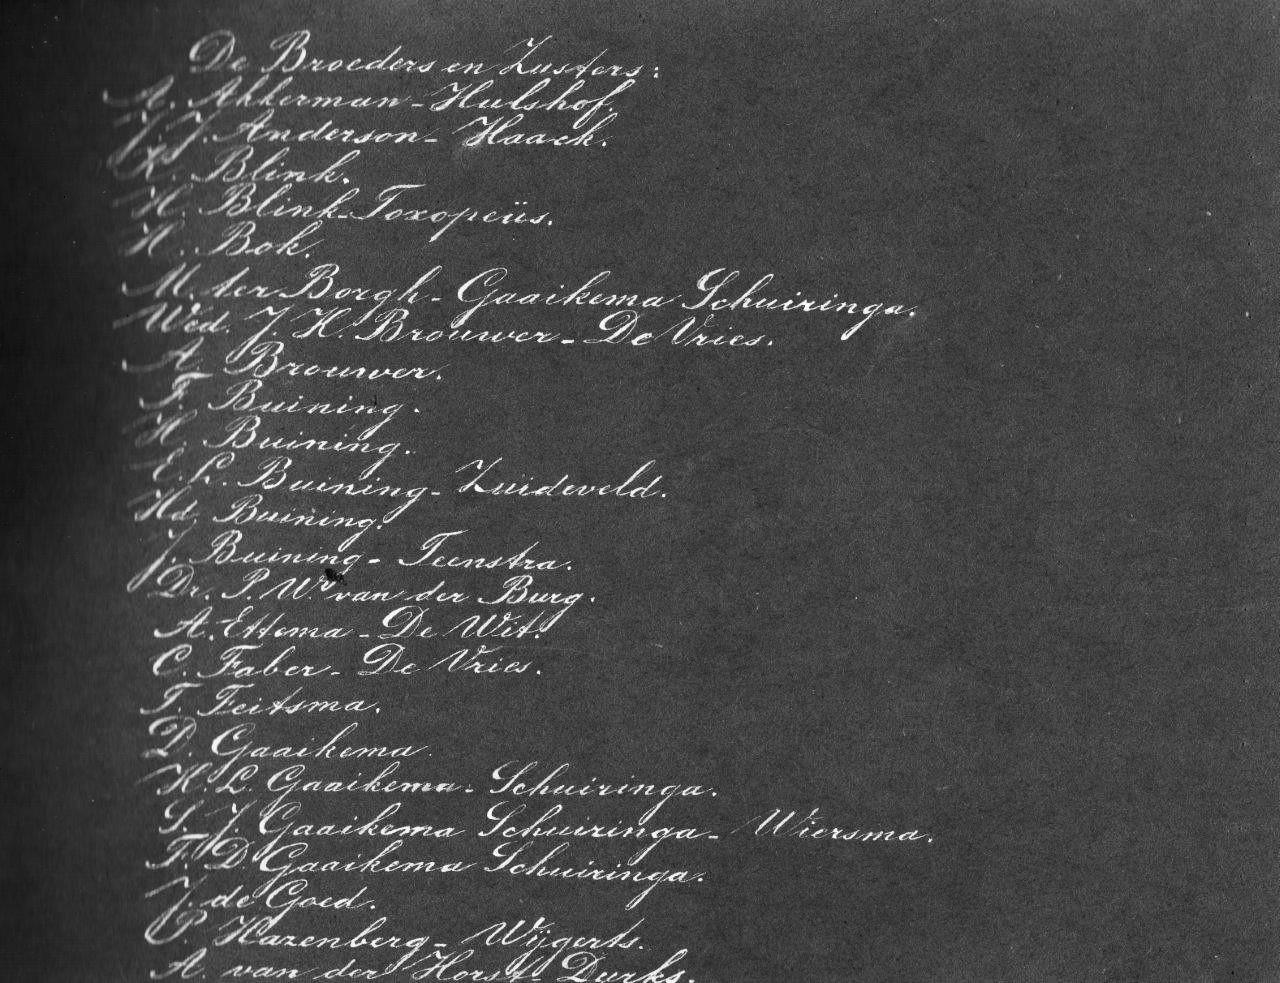 De Broeders en Zusters:
A. Akkerman - Hulshof.
J. J. Anderson - Haack.
K. Blink.
H. Blink - Toxopeüs.
H. Bok.
M. ter Borgh - Gaaikema Schuiringa.
Wed. J. H. Brouwer - De Vries.
A. Brouwer.
F. Buining.
H. Buining.
E. L. Buining - Zuideveld.
Hd. Buining.
J. Buining - Teenstra.
Dr. P. Wr van der Burg.
A. Ettema - De Wit.
C. Faber - De Vries.
T. Feitsma.
D. Gaaikema.
K. L. Gaaikema - Schuiringa.
G. J. Gaaikema Schuiringa - Wiersma.
T. D. Gaaikema Schuiringa.
J. de Goed.
P. Hazenberg - Wijgerts.
A. van der Horst - Durks.